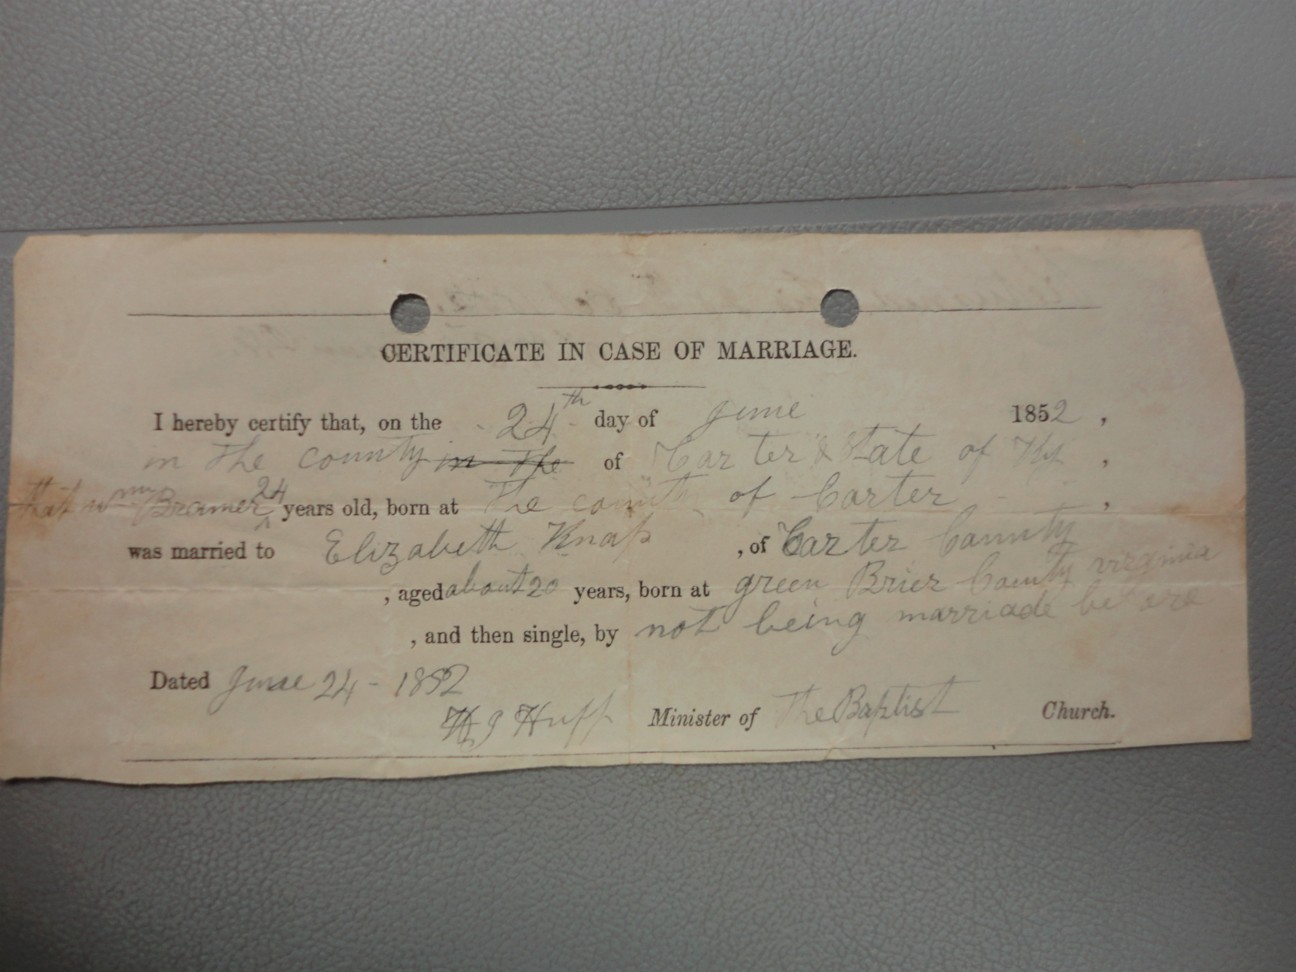 CERTIFICATE IN CASE OF MARRIAGE.
I hereby certify that, on the 24th day of June 1852,
in the county in the of Carter & State of Ky,
that Wm Bramer 24 years old, born at the county of Carter,
was married to Elizabeth Knap, of Carter County
, aged about 20 years, born at green Brier County virginia
, and then single, by not being marriade before
Dated June 24 - 1852
H J Huff Minister of The Baptist Church.